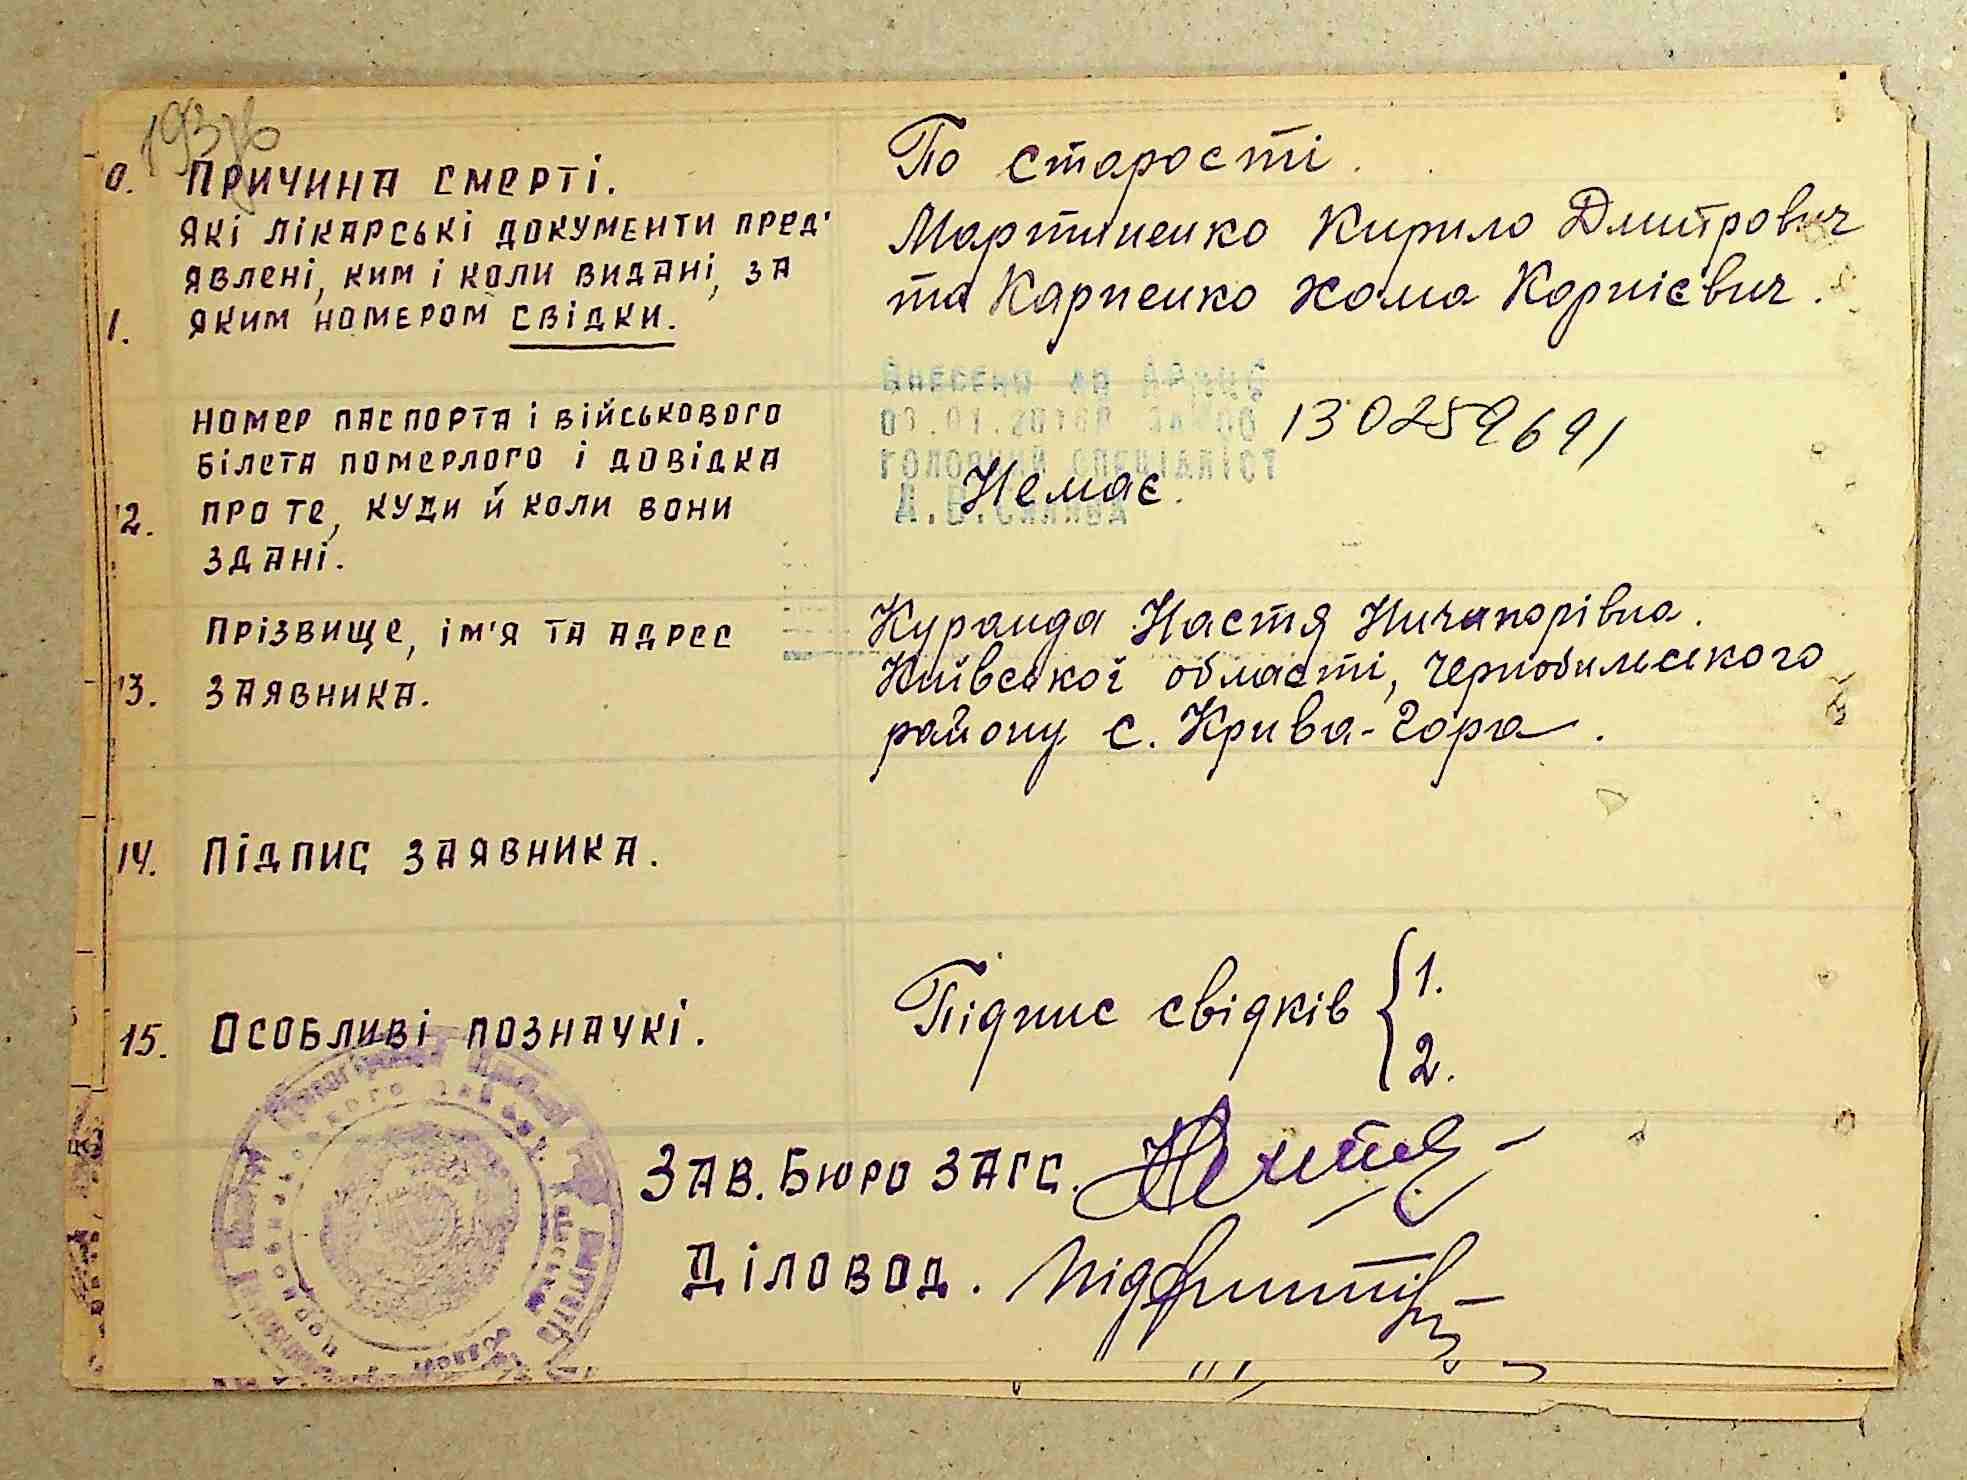 10. Причина смерті.
По старості.
Які лікарські документи пред'
явлені, ким і коли видані, за
11. яким номером свідки.
Мартиненко Кирило Дмитрович
та Карпенко Хома Корнієвич.
Номер паспорта і військового
білета померлого і довідка
12. про те, куди й коли вони
здані.
Внесено до
03.01.2018р
головний спеціаліст
130259691
Немає.
Прізвище, ім'я та адрес
13. заявника.
Куранда Настя Ничипорівна.
Київської області, Чернобильського
району с. Крива-Гора.
14. Підпис заявника.
15. Особливі познаукі.
Підпис свідків { 1.
2.
Зав. Бюро ЗАГС.
Діловод.